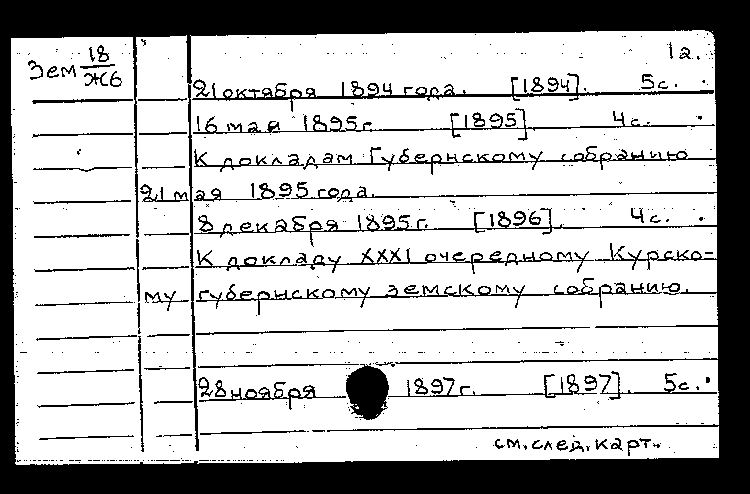 1а.
Зем 18
Ж6
21 октября 1894 года. [1894]. 5с.
16 мая 1895г. [1895]. 4с.
К докладам Губернскому собранию
21 мая 1895 года.
8 декабря 1895г. [1896]. 4с.
К докладу XXXI очередному Курско-
му губернскому земскому собранию.
28 ноября 1897г. [1897]. 5с.
см. след. карт.